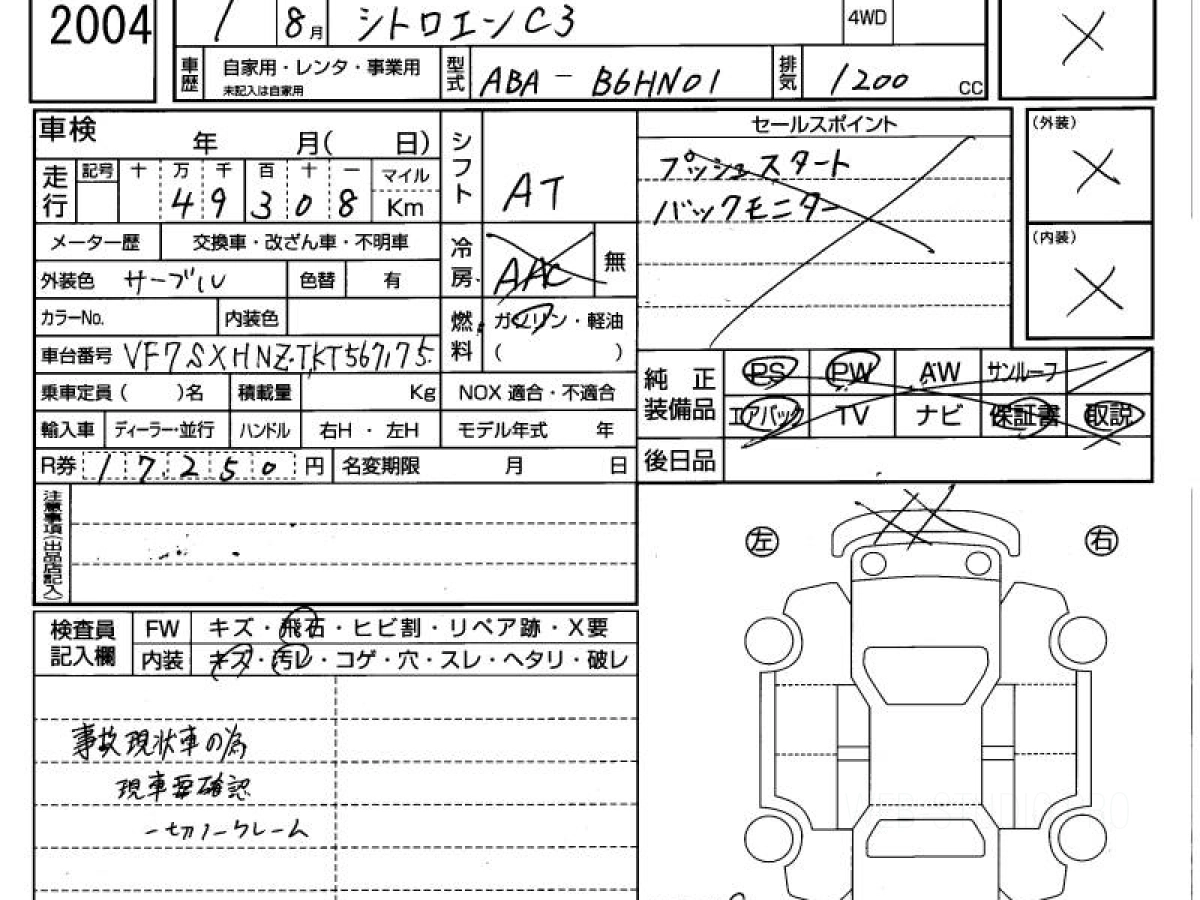 2004 1 8月 シトロエンC3 4WD
車歴 自家用・レンタ・事業用 型式 ABA - B6HN01 排気 1200 CC
未記入は自家用
車検 年 月( 日) シフト AT セールスポイント (外装)
走行 記号 十 万 千 百 十 一 マイル プッシュスタート
4 9 3 0 8 Km バックモニター
メーター歴 交換車・改ざん車・不明車 冷房 AAC 無 (内装)
外装色 サーブル 色替 有
カラーNo. 内装色 燃料 ガソリン・軽油
車台番号 VF7SXHNZTKT567175 ( )
乗車定員( )名 積載量 Kg NOX 適合・不適合 純正装備品 PS PW AW サンルーフ
輸入車 ディーラー・並行 ハンドル 右H・左H モデル年式 年 エアバック TV ナビ 保証書 取説
R券 17250 円 名変期限 月 日 後日品
注意事項(出品店記入)
左 右
検査員記入欄 FW キズ・飛石・ヒビ割・リペア跡・X要
内装 キズ・汚レ・コゲ・穴・スレ・ヘタリ・破レ
事故現状車の為
現車要確認
一切ノークレーム